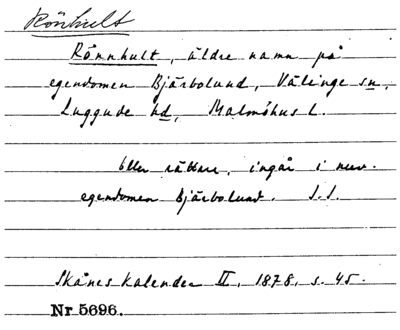 Rönhult
Rönnhult, äldre namn på
egendomen Bjärbolund, Välinge sn,
Luggude hd, Malmöhus l.
eller rättare, ingår i nuv.
egendomen Bjärbolund. S.S.
Skånes Kalender II, 1878, s. 45.
Nr 5696.